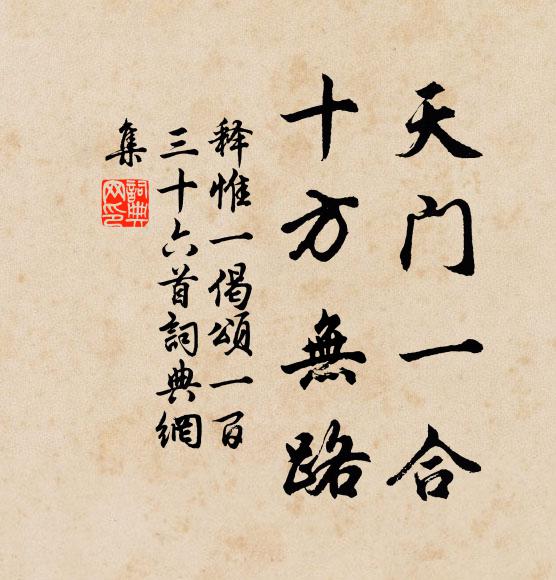 天门一合
十方無路
释惟一偈颂一百
三十六首詞典網
集
詞典网印